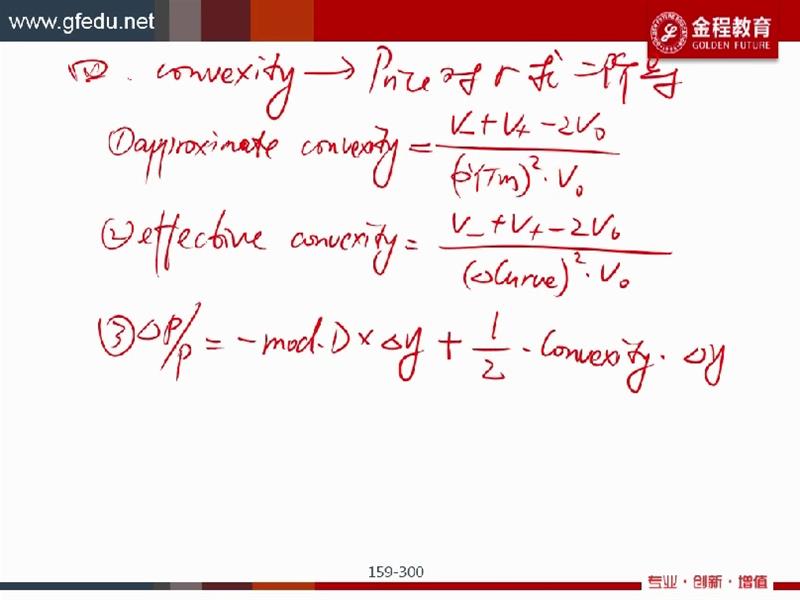 www.gfedu.net
金程教育
GOLDEN FUTURE
四. convexity → Price 对 r 求二阶导
①approximate convexity = (V₋+V₊-2V₀)/((ΔYTM)²·V₀)
②effective convexity = (V₋+V₊-2V₀)/((ΔCurve)²·V₀)
③ΔP/P = -mod.D×Δy + 1/2·Convexity·Δy
159-300
专业·创新·增值